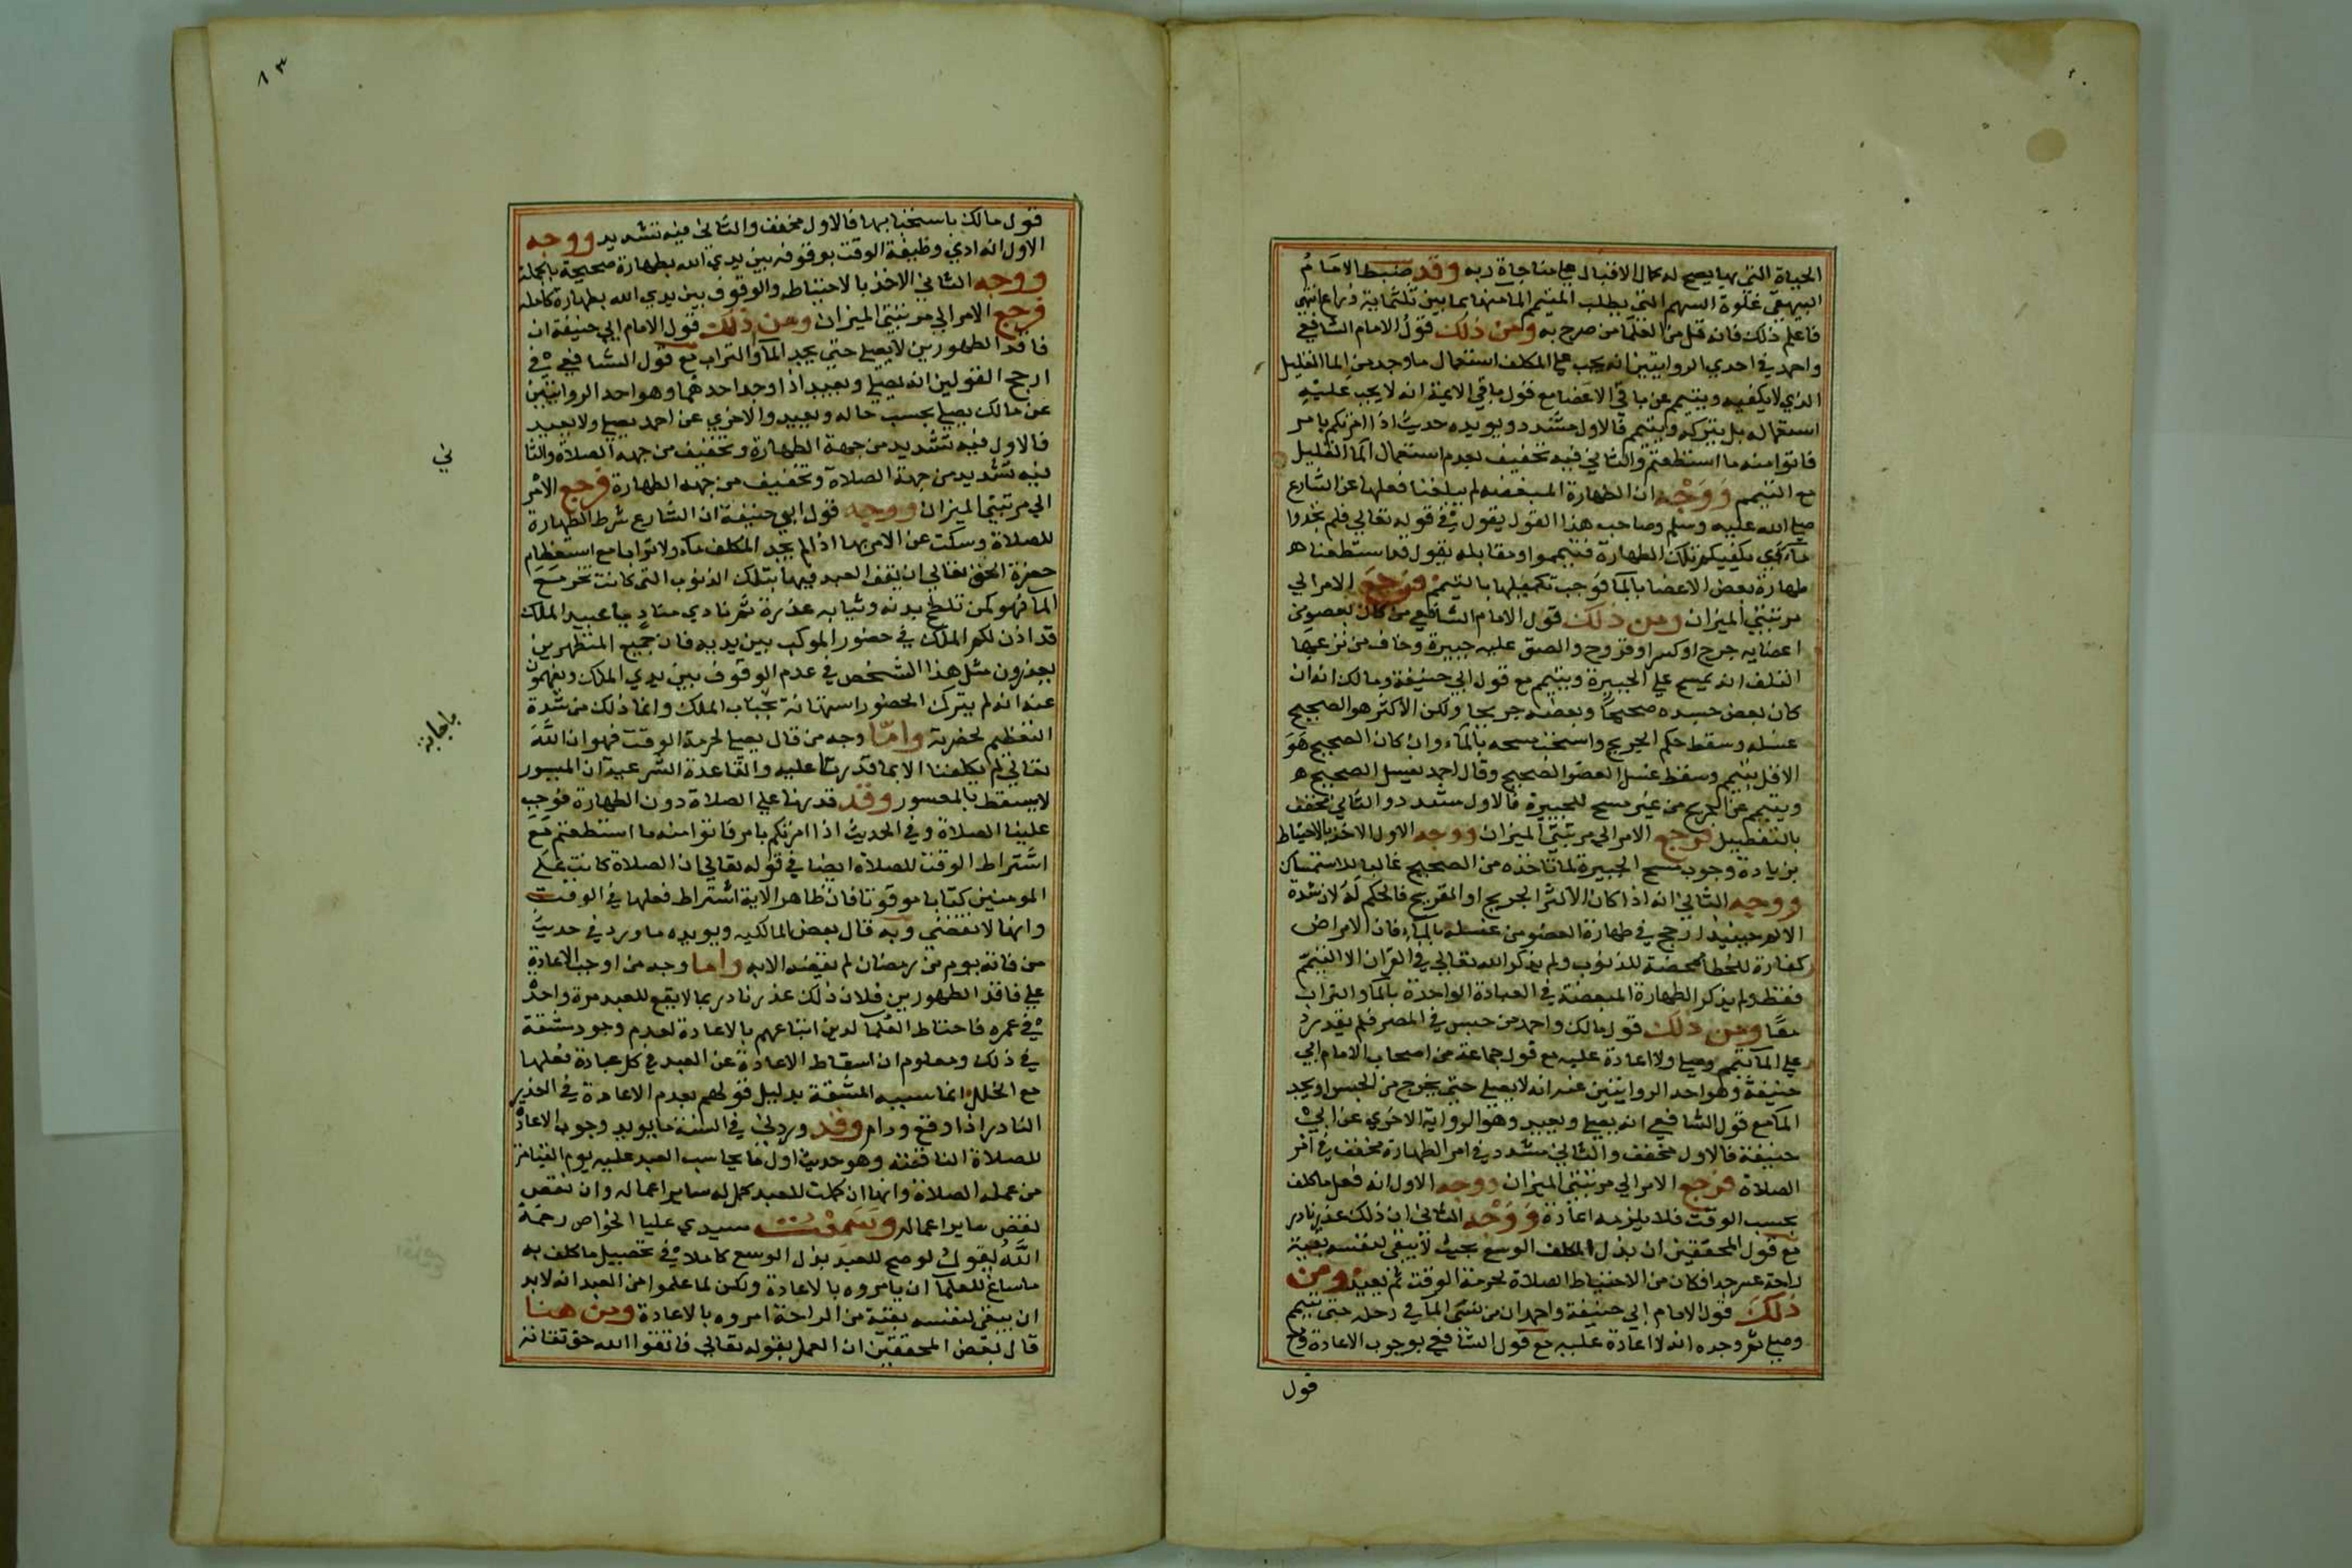 الحياة التي بها يصح له كمال الاقبال علي مناجاة ربه وقد ضبط الامام
البيهقي غلوة السهم التي يطلب المتيمم الما منها بما بين ثلثماية ذراع انتهي
فاعلم ذلك فانه قل من العلما من صرح به ومن ذلك قول الامام الشافعي
واحمد في احدي الروايتين انه يجب علي المكلف استعمال ما وجد من الما القليل
الذي لا يكفيه ويتيمم عن باقي الاعضا مع قول باقي الايمة انه لا يجب عليه
استعماله بل يتركه ويتيمم فالاول مشدد ويويده حديث اذا امرتكم بامر
فاتوا منه ما استطعتم والثاني فيه تخفيف بعدم استعمال الما القليل
مع التيمم ووجه ان الطهارة المبعضه لم يبلغنا فعلها عن الشارع
صلي الله عليه وسلم وصاحب هذا القول يقول في قوله تعالي فلم تجدوا
ماء اي يكفيكم لتلك الطهارة فتيمموا ومقابله يقول قد استطعنا
طهارة بعض الاعضا بالما فوجب تكميلها بالتيمم فرجع الامر الي
مرتبتي الميزان ومن ذلك قول الامام الشافعي من كان بعضو من
اعضايه جرح او كسر او قروح والصق عليه جبيرة وخاف من نزعها
التلف انه يمسح علي الجبيرة ويتيمم مع قول ابي حنيفة ومالك انه ان
كان بعض جسده صحيحا وبعضه جريحا ولكن الاكثر هو الصحيح
غسله وسقط حكم الجريح واستحب مسحه بالماء وان كان الصحيح هو
الاقل يتيمم وسقط غسل العضو الصحيح وقال احمد يغسل الصحيح
ويتيمم عن الجريح من غير مسح للجبيرة فالاول مشدد والثاني مخفف
بالتفصيل فرجع الامر الي مرتبتي الميزان ووجه الاول الاخذ بالاحتياط
بزيادة وجوب مسح الجبيرة لما تاخذه من الصحيح غالبا للاستمساك
ووجه الثاني انه اذا كان الاكثر الجريح او القريح فالحكم له لان شدة
الالم حينيذ ارجح في طهارة العضو من غسله بالماء فان الامراض
كفارة للخطا ممحصة للذنوب ولم يذكر الله تعالي في القران الا التيمم
فقط ولم يذكر الطهارة المبعضة في العبادة الواحدة بالما والتراب
معا ومن ذلك قول مالك واحمد من حبس في المصر فلم يقدر
علي الما تيمم وصلي ولا اعادة عليه مع قول جماعة من اصحاب الامام ابي
حنيفة وهو احد الروايتين عنه انه لا يصلي حتي يخرج من الحبس او يجد
الما مع قول الشافعي انه يصلي ويعيد وهو الرواية الاخري عن ابي
حنيفة فالاول مخفف والثاني مشدد في امر الطهارة مخفف في امر
الصلاة فرجع الامر الي مرتبتي الميزان ووجه الاول انه فعل ما كلف
بحسب الوقت فلا يلزمه اعادة ووجه الثاني ان ذلك عذر نادر
مع قول المحققين ان بذل المكلف الوسع بحيث لا يبقي لنفسه بقية
راحة عسر جدا فكان من الاحتياط الصلاة لحرمة الوقت ثم يعيد ومن
ذلك قول الامام ابي حنيفة واحمد ان من نسي الما في رحله حتي تيمم
وصلي ثم وجده انه لا اعادة عليه مع قول الشافعي بوجوب الاعادة ومع
قول
٨٣
قول مالك باستحبابها فالاول مخفف والثاني فيه تشديد ووجه
الاول انه ادي وظيفة الوقت بوقوفه بين يدي الله بطهارة صحيحة بالجملة
ووجه الثاني الاخذ بالاحتياط والوقوف بين يدي الله بطهارة كامله
فرجع الامر الي مرتبتي الميزان ومن ذلك قول الامام ابي حنيفة ان
فاقد الطهورين لا يصلي حتي يجد الما والتراب مع قول الشافعي في
ارجح القولين انه يصلي ويعيد اذا وجد احدهما وهو احد الروايتين
عن مالك يصلي بحسب حاله ويعيد والاخري عن احمد يصلي ولا يعيد
فالاول فيه تشديد من جهة الطهارة وتخفيف من جهة الصلاة والثا
ني
فيه تشديد من جهة الصلاة وتخفيف من جهة الطهارة فرجع الامر
الي مرتبتي الميزان ووجه قول ابي حنيفة ان الشارع شرط الطهارة
للصلاة وسكت عن الامر بها اذا لم يجد المكلف ماء ولا ترابا مع استعظام
حضرة الحق تعالي ان يقف العبد فيها بتلك الذنوب التي كانت تخر مع
الما فهو كمن تلطخ بدنه وثيابه عذرة ثم نادي مناد يا عبيد الملك
قد اذن لكم الملك في حضور الموكب بين يديه فان جميع المتطهرين
يعذرون مثل هذا الشخص في عدم الوقوف بين يدي الملك ويفهمون
عنه انه لم يترك الحضور استهانة بجناب الملك وانما ذلك من شدة
باجابة
التعظيم لحضرته واما وجه من قال يصلي لحرمة الوقت فهو ان الله
تعالي لم يكلفنا الا بما قدرنا عليه والقاعدة الشرعية ان الميسور
لا يسقط بالمعسور وقد قدرنا علي الصلاة دون الطهارة فوجب
علينا الصلاة وفي الحديث اذا امرتكم بامر فاتوا منه ما استطعتم مع
اشتراط الوقت للصلاة ايضا في قوله تعالي ان الصلاة كانت علي
المومنين كتابا موقوتا فان ظاهر الاية اشتراط فعلها في الوقت
وانها لا تقضي وبه قال بعض المالكيه ويويده ما ورد في حديث
من فاته يوم من رمضان لم يقضه الابد واما وجه من اوجب الاعادة
علي فاقد الطهورين فلان ذلك عذر نادر ربما لا يقع للعبد مرة واحدة
في عمره فاحتاط العلما لدين اتباعهم بالاعادة لعدم وجود مشقة
في ذلك ومعلوم ان اسقاط الاعادة عن العبد في كل عبادة فعلها
مع الخلل انما سببه المشقة بدليل قولهم بعدم الاعادة في العذر
النادر اذا وقع ودام وقد ورد لي في السنة ما يويد وجوب الاعادة
للصلاة الناقصة وهو حديث اول ما يحاسب العبد عليه يوم القيامة
من عمله الصلاة وانها ان كملت للعبد كمل له ساير اعماله وان نقص
نقص ساير اعماله وسمعت سيدي عليا الخواص رحمه
الله يقول لو صح للعبد بذل الوسع كاملا في تحصيل ما كلف به
ما ساغ للعلما ان يامروه بالاعادة ولكن لما علموا من العبد انه لا بد
ان يبقي لنفسه بقية من الراحة امروه بالاعادة ومن هنا
قال بعض المحققين ان العمل بقوله تعالي فاتقوا الله حق تقاته